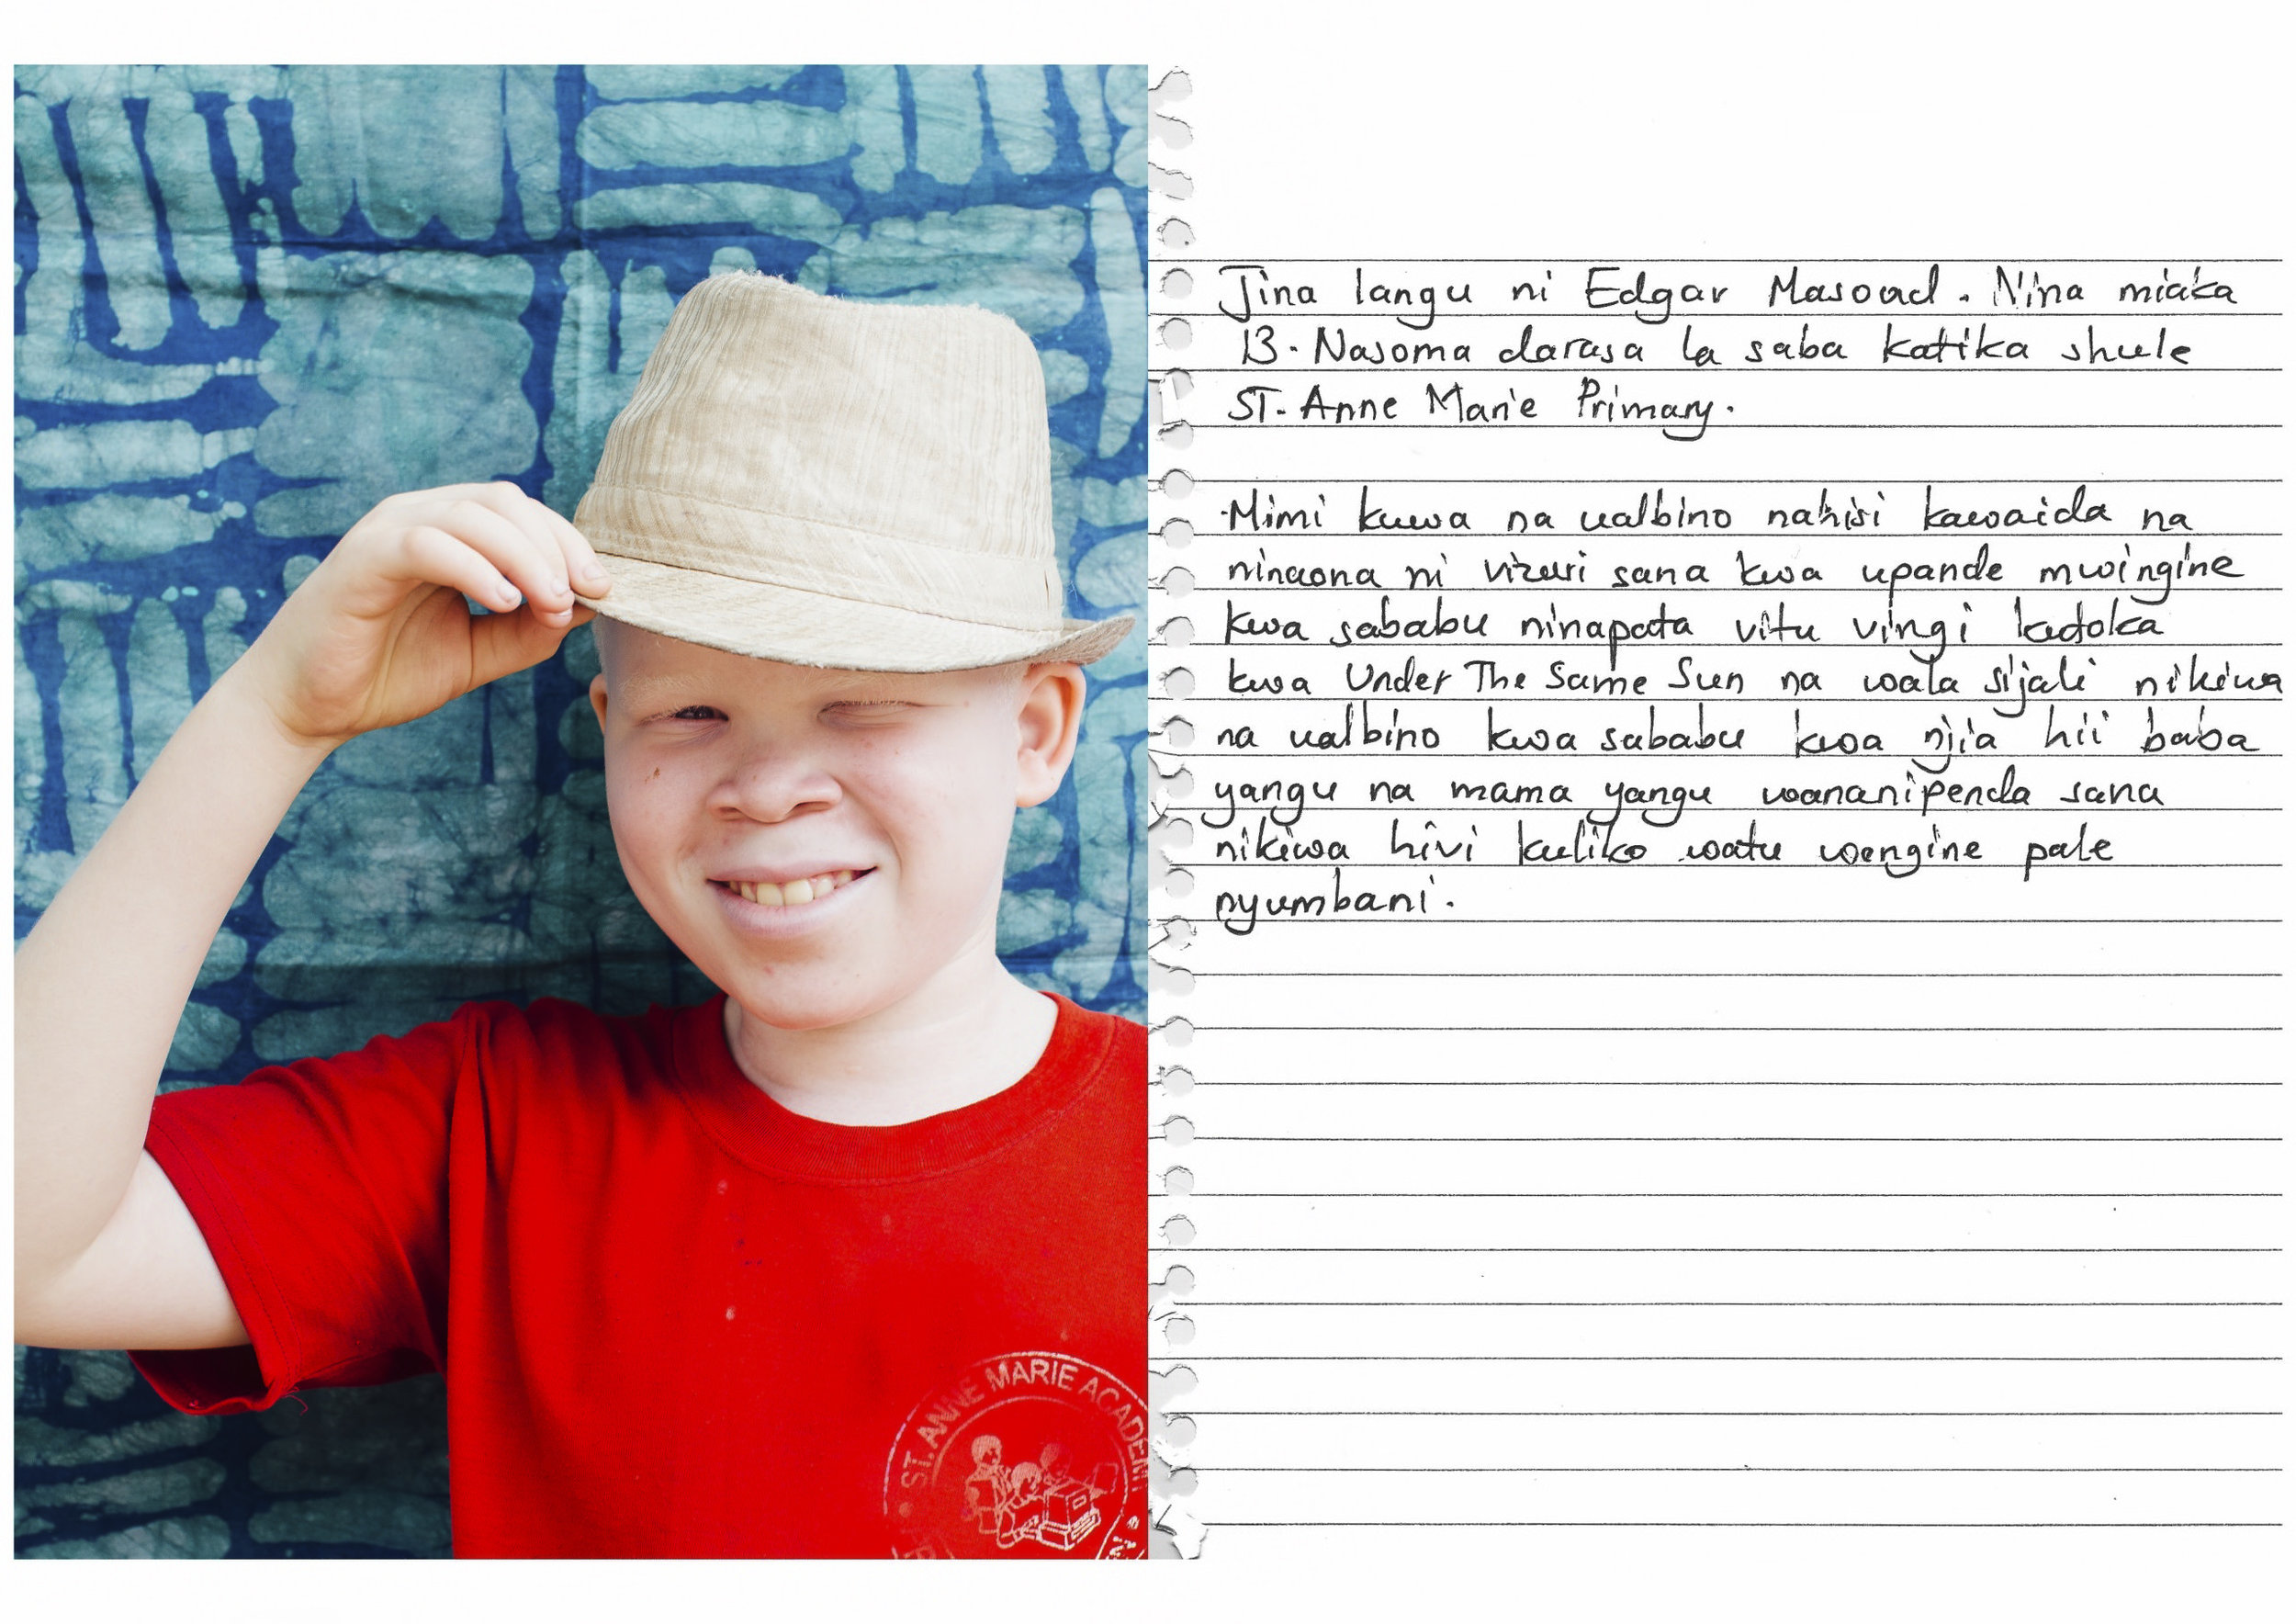 Jina langu ni Edgar Masoud. Nina miaka
13. Nasoma darasa la saba katika shule
ST. Anne Marie Primary.
Mimi kuwa na ualbino nahisi kawaida na
ninaona ni vizuri sana kwa upande mwingine
kwa sababu ninapata vitu vingi kutoka
kwa Under The Same Sun na wala sijali nikiwa
na ualbino kwa sababu kwa njia hii baba
yangu na mama yangu wananipenda sana
nikiwa hivi kuliko watu wengine pale
nyumbani.
ST. ANNE MARIE ACADEM